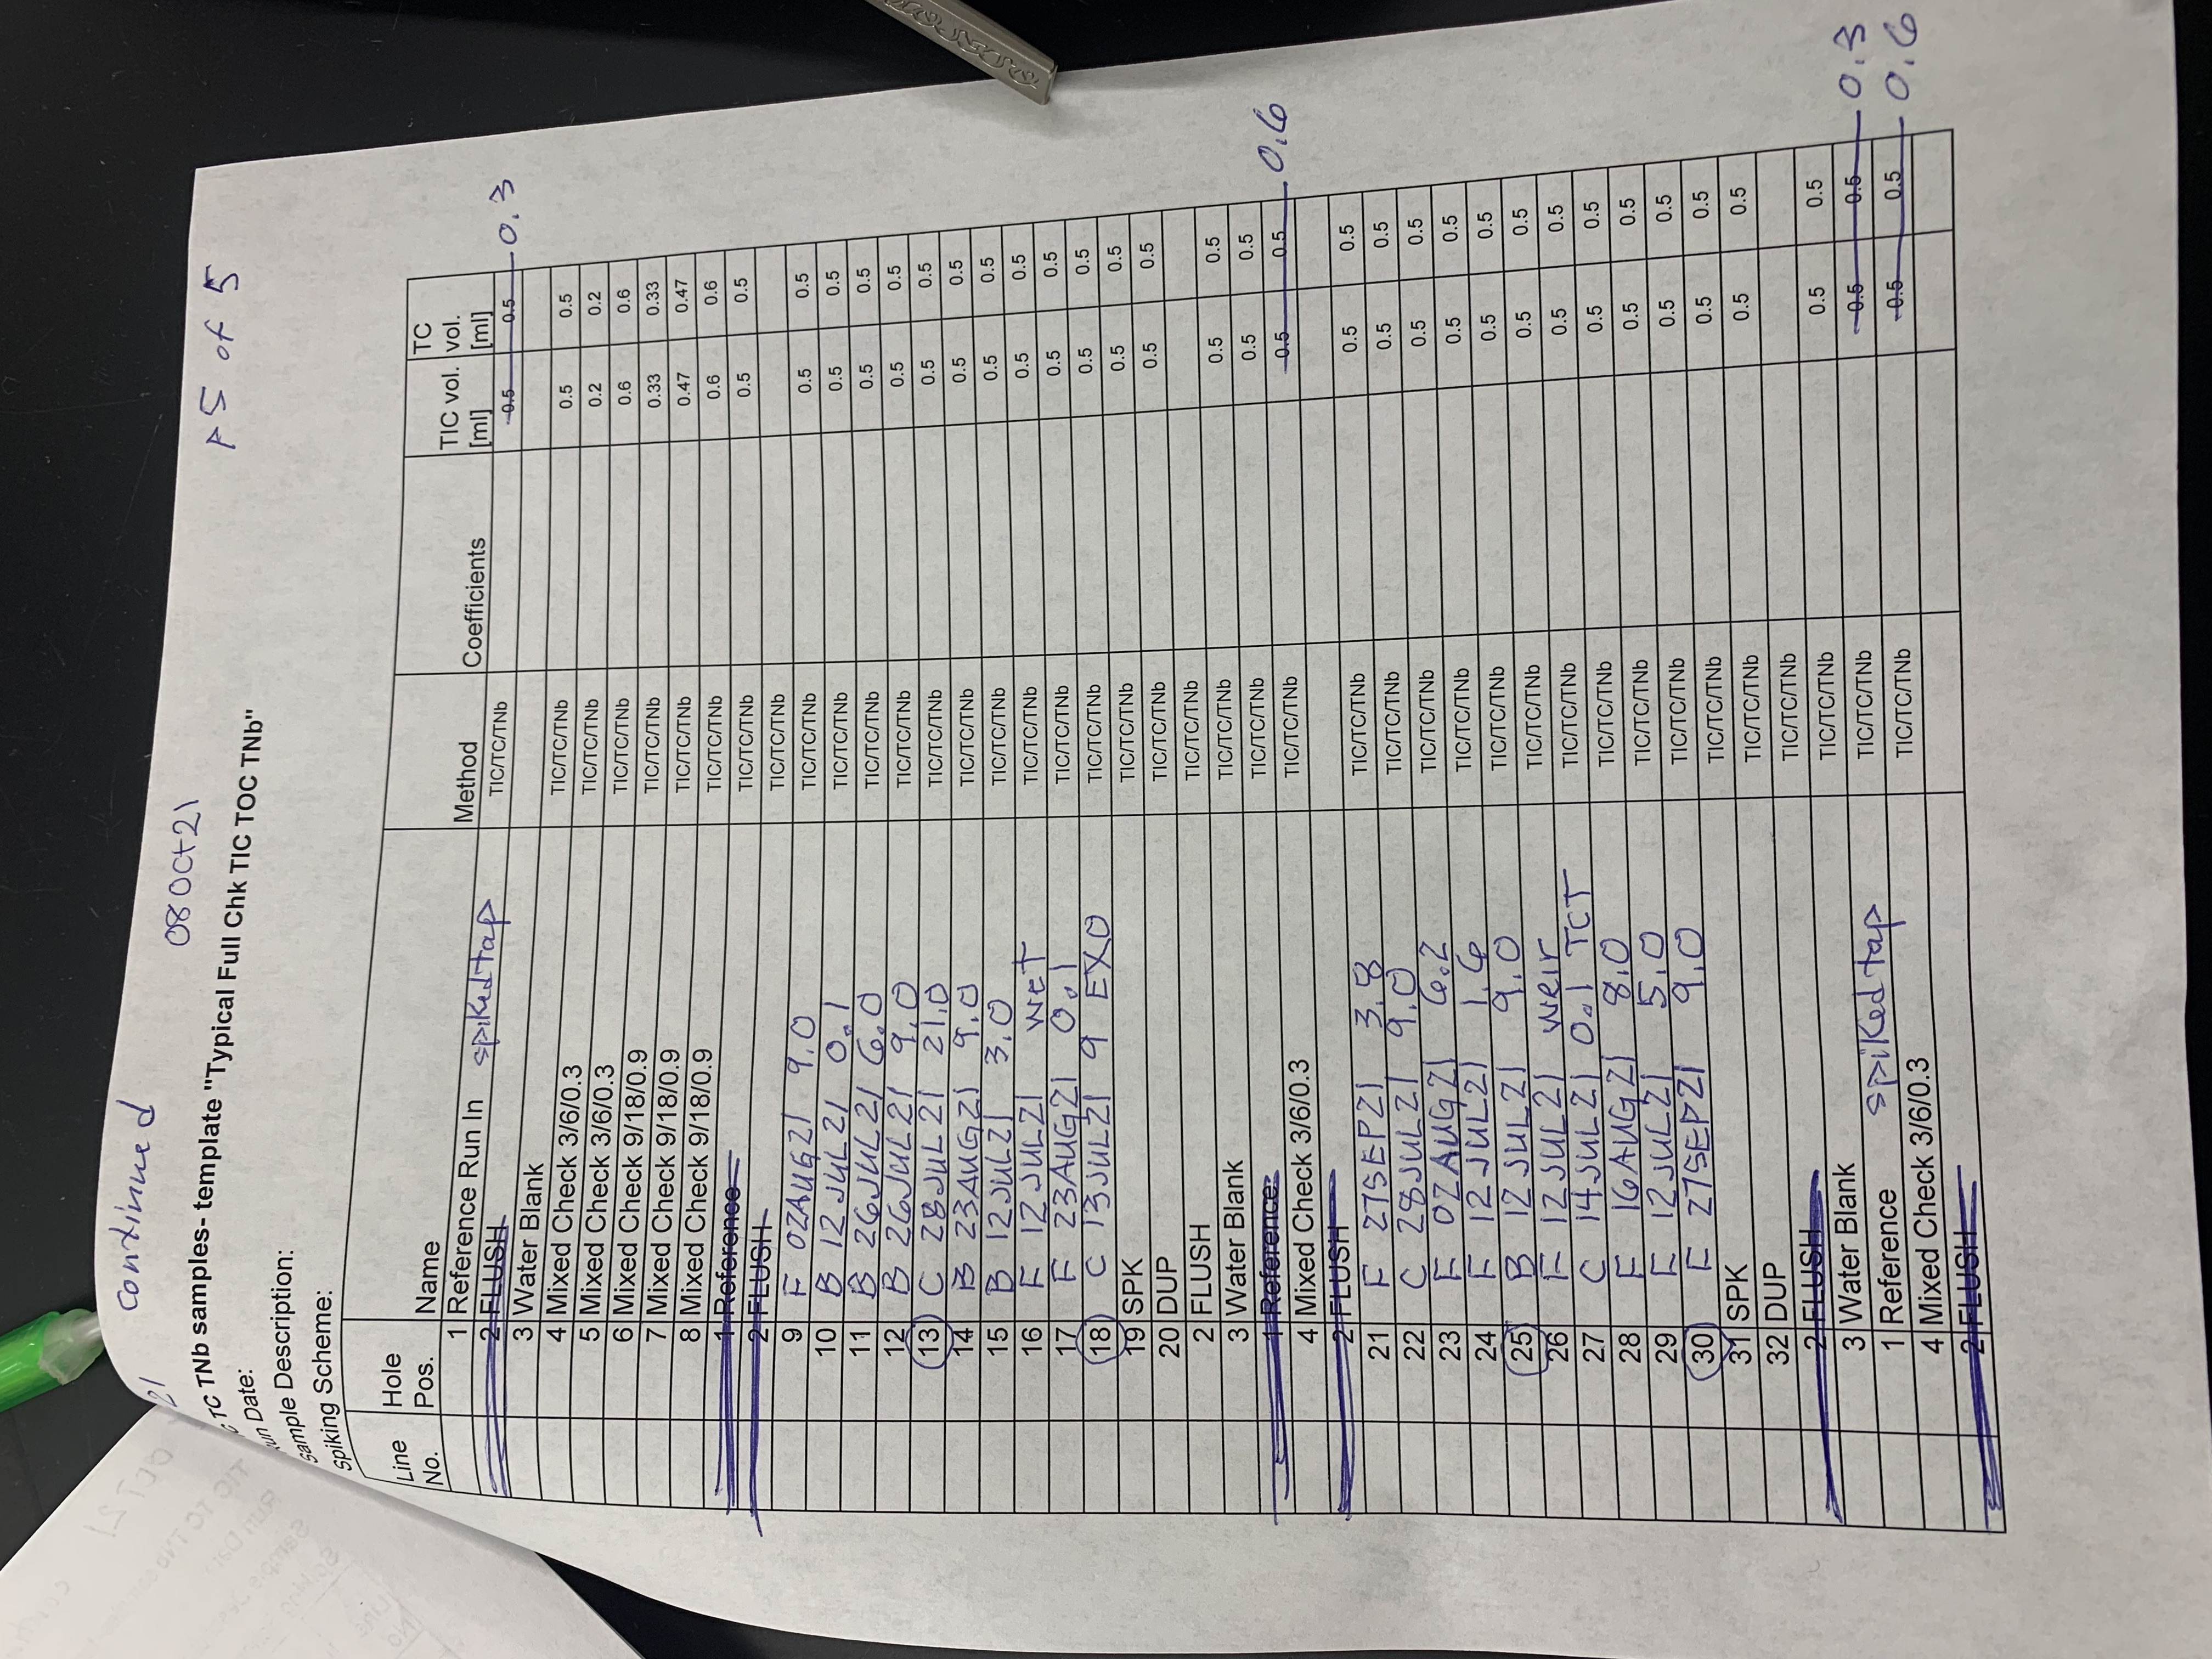 21 continued
08Oct21
p5 of 5
TC TNb samples- template "Typical Full Chk TIC TOC TNb"
Run Date:
Sample Description:
Spiking Scheme:
Line No. Hole Pos. Name Method Coefficients TIC vol. [ml] TC vol. [ml]
1 Reference Run In spiked tap TIC/TC/TNb 0.5 0.5 0.3
2 FLUSH
3 Water Blank TIC/TC/TNb 0.5 0.5
4 Mixed Check 3/6/0.3 TIC/TC/TNb 0.2 0.2
5 Mixed Check 3/6/0.3 TIC/TC/TNb 0.6 0.6
6 Mixed Check 9/18/0.9 TIC/TC/TNb 0.33 0.33
7 Mixed Check 9/18/0.9 TIC/TC/TNb 0.47 0.47
8 Mixed Check 9/18/0.9 TIC/TC/TNb 0.6 0.6
1 Reference TIC/TC/TNb 0.5 0.5
2 FLUSH TIC/TC/TNb
9 F 02AUG21 9.0 TIC/TC/TNb 0.5 0.5
10 B 12JUL21 0.1 TIC/TC/TNb 0.5 0.5
11 B 26JUL21 6.0 TIC/TC/TNb 0.5 0.5
12 B 26JUL21 9.0 TIC/TC/TNb 0.5 0.5
13 C 28JUL21 21.0 TIC/TC/TNb 0.5 0.5
14 B 23AUG21 9.0 TIC/TC/TNb 0.5 0.5
15 B 12JUL21 3.0 TIC/TC/TNb 0.5 0.5
16 F 12JUL21 wet TIC/TC/TNb 0.5 0.5
17 F 23AUG21 0.1 TIC/TC/TNb 0.5 0.5
18 C 13JUL21 9 EXO TIC/TC/TNb 0.5 0.5
19 SPK TIC/TC/TNb 0.5 0.5
20 DUP TIC/TC/TNb 0.5 0.5
2 FLUSH TIC/TC/TNb
3 Water Blank TIC/TC/TNb 0.5 0.5
1 Reference TIC/TC/TNb 0.5 0.5
4 Mixed Check 3/6/0.3 TIC/TC/TNb 0.5 0.5 0.6
2 FLUSH
21 F 27SEP21 3.8 TIC/TC/TNb 0.5 0.5
22 C 28JUL21 9.0 TIC/TC/TNb 0.5 0.5
23 F 02AUG21 6.2 TIC/TC/TNb 0.5 0.5
24 F 12JUL21 1.6 TIC/TC/TNb 0.5 0.5
25 B 12JUL21 9.0 TIC/TC/TNb 0.5 0.5
26 F 12JUL21 weir TIC/TC/TNb 0.5 0.5
27 C 14JUL21 0.1 TCT TIC/TC/TNb 0.5 0.5
28 F 16AUG21 8.0 TIC/TC/TNb 0.5 0.5
29 F 12JUL21 5.0 TIC/TC/TNb 0.5 0.5
30 F 27SEP21 9.0 TIC/TC/TNb 0.5 0.5
31 SPK TIC/TC/TNb 0.5 0.5
32 DUP TIC/TC/TNb 0.5 0.5
2 FLUSH TIC/TC/TNb
3 Water Blank TIC/TC/TNb 0.5 0.5
1 Reference spiked tap TIC/TC/TNb 0.5 0.5 0.3
4 Mixed Check 3/6/0.3 TIC/TC/TNb 0.5 0.5 0.6
2 FLUSH